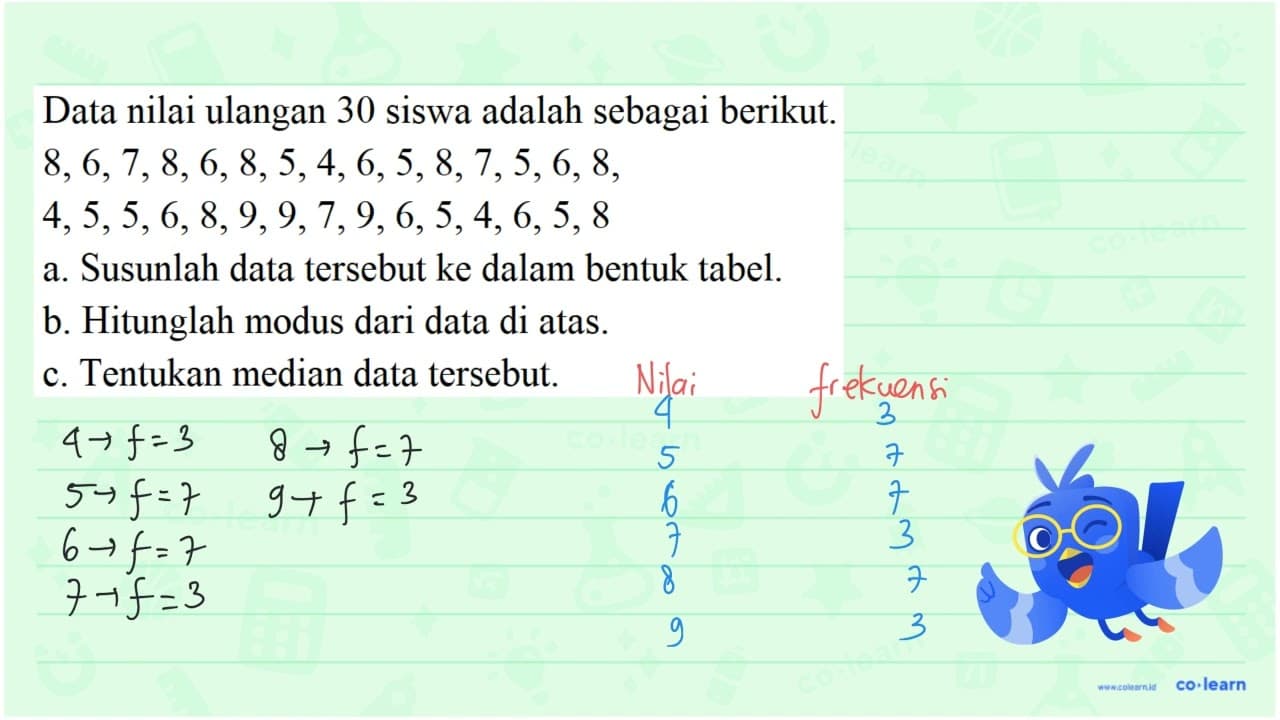 Data nilai ulangan 30 siswa adalah sebagai berikut.
8, 6, 7, 8, 6, 8, 5, 4, 6, 5, 8, 7, 5, 6, 8,
4, 5, 5, 6, 8, 9, 9, 7, 9, 6, 5, 4, 6, 5, 8
a. Susunlah data tersebut ke dalam bentuk tabel.
b. Hitunglah modus dari data di atas.
c. Tentukan median data tersebut.
4 → f = 3
5 → f = 7
6 → f = 7
7 → f = 3
8 → f = 7
9 → f = 3
Nilai frekuensi
4 3
5 7
6 7
7 3
8 7
9 3
www.colearn.id co·learn